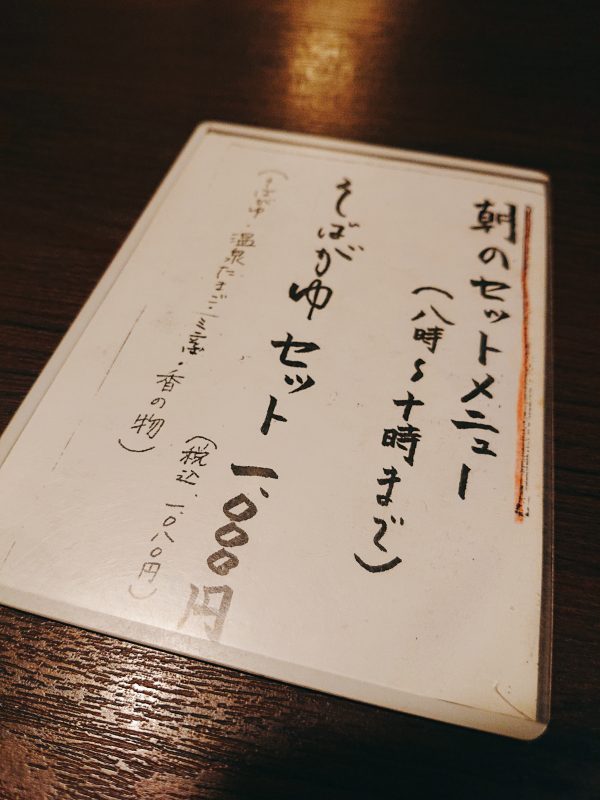 朝のセットメニュー
(八時〜十時まで)
そばがゆセット 一、〇〇〇円
(税込、一、〇八〇円)
(そばがゆ・温泉たまご・三つ葉・香の物)